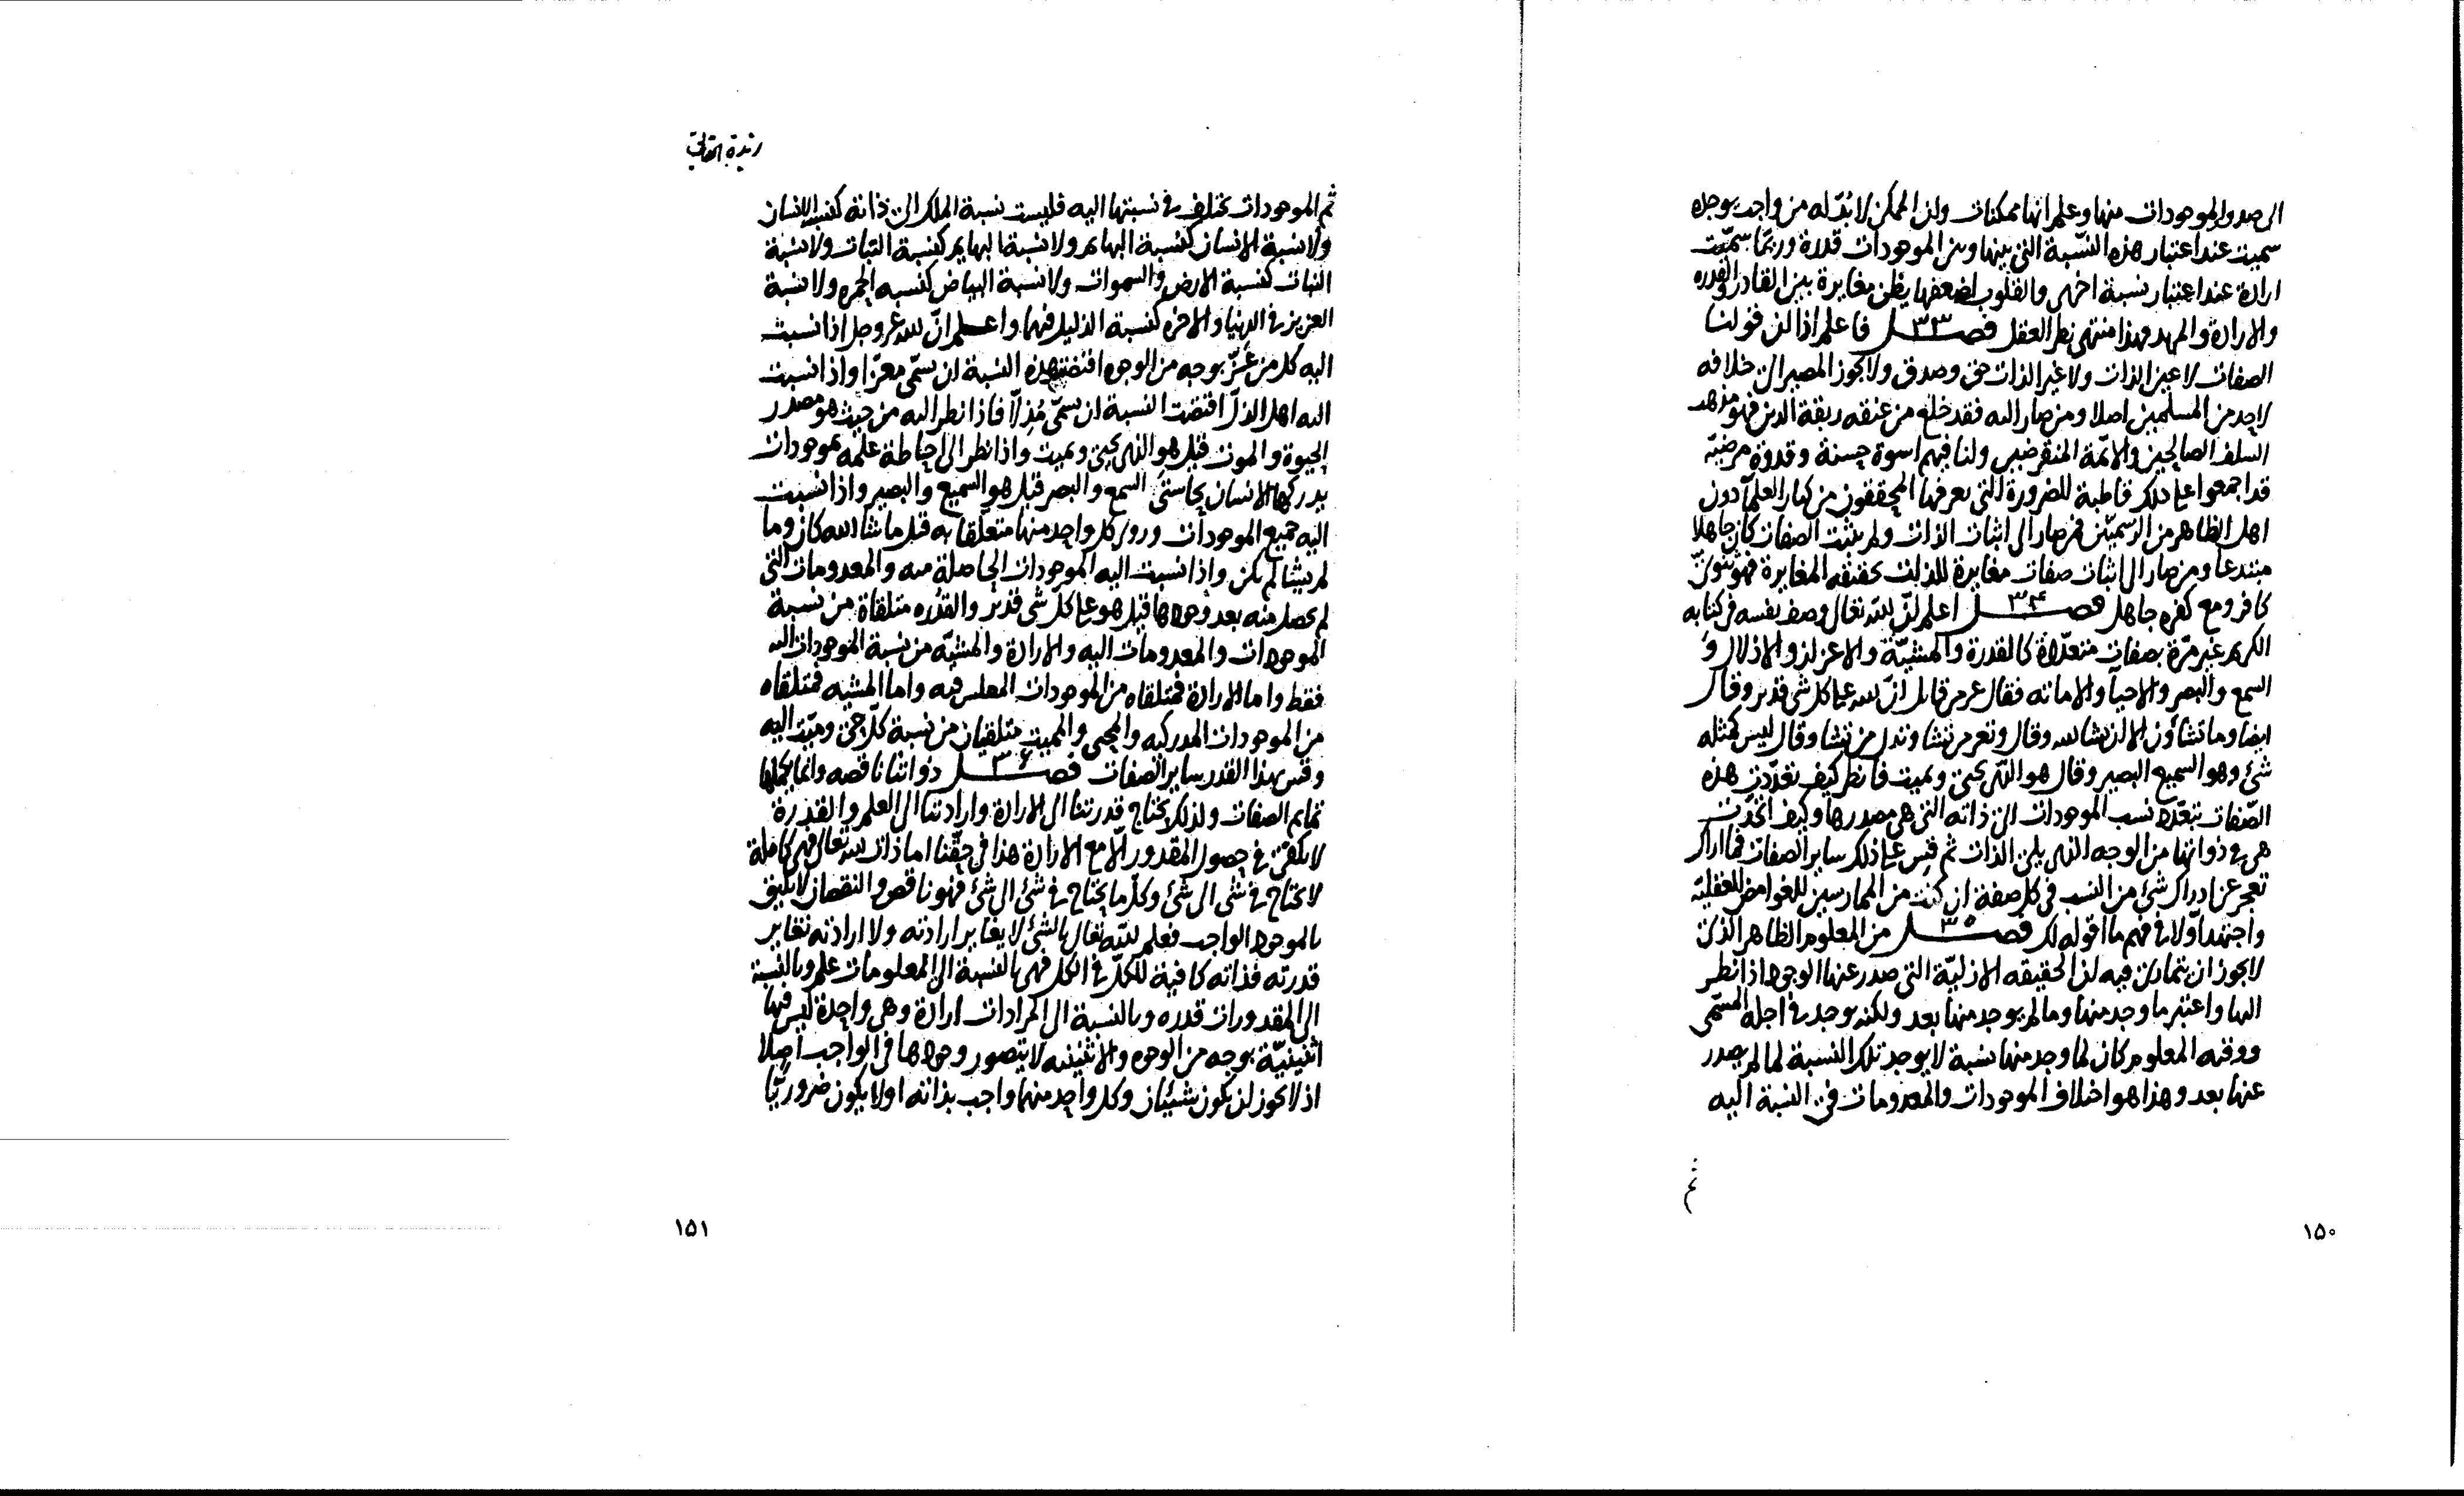 الى صدور الموجودات منها وعلم انها ممكنات ولن الممكن لا بدّ له من واجب يوجده
سميت عند اعتبار هذه النسبة التى بينها وبين الموجودات قدرة وربما سمّيت
ارادة عند اعتبار نسبة اخرى والقلوب لضعفها يظن مغايرة بين القادر والقدره
والارادة والمريد وهذا منتهى نظر العقل فصــل ٣٣ فاعلم اذا ان قولنا
الصفات لا عين الذات ولا غير الذات حق وصدق ولا يجوز المصير الى خلافه
لاحد من المسلمين اصلا ومن صار اليه فقد خلع من عنقه ربقة الدين فهو مذهب
السلف الصالحين والائمة المنقرضين ولنا فيهم اسوة حسنة وقدوة مرضيّة
قد اجمعوا على ذلك قاطبة للضرورة التى يعرفها المحققون من كبار العلمآ دون
اهل الظاهر من الرسميّين فمن صار الى اثبات الذات ولم يثبت الصفات كان جاهلا
مبتدعا ومن صار الى اثبات صفات مغايرة للذات حقيقه المغايرة فهو ثنوىّ
كافر ومع كفره جاهل فصــل ٣٤ اعلم انّ لله تعالى وصف نفسه فى كتابه
الكريم غير مرّة بصفات متعدّدة كالقدرة والمشيّة والاعزاز والاذلال و
السمع والبصر والاحيآ والاماته فقال عز من قايل انّ لله على كل شى قدير وقال
ايضا وما تشاؤن الا ان يشا لله وقال وتعز من تشا وتذل من تشا وقال ليس كمثله
شئ وهو السميع البصير وقال هو الذى يحيى ويميت فانظر كيف تعدّدت هذه
الصّفات بتعدّد نسب الموجودات الى ذاته التى هى مصدرها وكيف اتحدت
هى فى ذواتها من الوجه الذى يلى الذات ثم قس على ذلك ساير الصفات فما اراك
تعجز عن ادراك شئ من النسب فى كل صفة ان كنت من الممارسين للغوامض العقليّة
واجتهد اوّلا فى فهم ما اقوله لك فصــل ٣٥ من المعلوم الظاهر الذى
لا يجوز ان يتمارى فيه ان الحقيقه الازليّة التى صدر عنها الوجود اذا نظر
اليها واعتبر ما وجد منها وما لم يوجد منها بعد ولكنه يوجد فى اجله المسمّى
ووقته المعلوم كان لما وجد منها نسبة لا يوجد تلك النسبة لما لم يصدر
عنها بعد وهذا هو اختلاف الموجودات والمعدومات فى النسبة اليه
١٥٠
زبدة الحقائق
ثم الموجودات تختلف فى نسبتها اليه فليست نسبة الملك الى ذاته كنسبة الانسان
ولا نسبة الانسان كنسبة البهايم ولا نسبة البهايم كنسبة النبات ولا نسبة
النبات كنسبة الارض والسموات ولا نسبة البياض كنسبه الحمره ولا نسبة
العزيز فى الدنيا والاخره كنسبة الذليل فيهما واعــلم انّ لله عز وجل اذا نسبت
اليه كل من عَزّ بوجه من الوجوه اقتضت هذه النسبة ان يسمّى معزّا واذا نسبت
اليه اهل الذلّ اقتضت النسبة ان يسمّى مُذِلّا فاذا نظر اليه من حيث هو مصدر
الحيوة والموت قيل هو الذى يحيى ويميت واذا نظر الى احاطة علمه بموجودات
يدركها الانسان بحاستى السمع والبصر قيل هو السميع والبصير واذا نسبت
اليه جميع الموجودات ورؤى كل واحد منها متعلّقا به قيل ما شا لله كان وما
لم يشا لم يكن واذا نسبت اليه الموجودات الحاصلة منه والمعدومات التى
لم يحصل منه بعد وجودها قيل هو على كل شى قدير والقدره متلقاة من نسبة
الموجودات والمعدومات اليه والارادة والمشيّه من نسبة الموجودات اليه
فقط واما الارادة فمتلقاه من الموجودات فيه واما المشيه فمتلقاه
من الموجودات المدركه والمحيى والمميت متلقيان من نسبة كلّ حىّ وميّت اليه
وقس بهذا القدر ساير الصفات فصــل ٣٦ ذواتنا ناقصه وانما يكملها
تمايم الصفات ولذلك يحتاج قدرتنا الى الارادة وارادتنا الى العلم والقدرة
لا يكفى فى حصول المقدور الّا مع الارادة هذا فى حقّنا اما ذات لله تعالى فهى كاملة
لا تحتاج فى شئ الى شئ وكلّ ما يحتاج فى شئ الى شئ فهو ناقص والنقصان لا يليق
بالموجود الواجب فعلم لله تعالى بالشئ لا يغاير ارادته ولا ارادته تغاير
قدرته فذاته كافية للكلّ فى الكل فهى بالنسبة الى المعلومات علم وبالنسبة
الى المقدورات قدره وبالنسبة الى المرادات ارادة وهى واحدة ليس فيها
اثنينيّة بوجه من الوجوه والاثنينيه لا يتصور وجودها فى الواجب اصلا
اذ لا يجوز ان يكون شيئان وكل واحد منهما واجب بذاته اولا يكون ضروريّا
١٥١